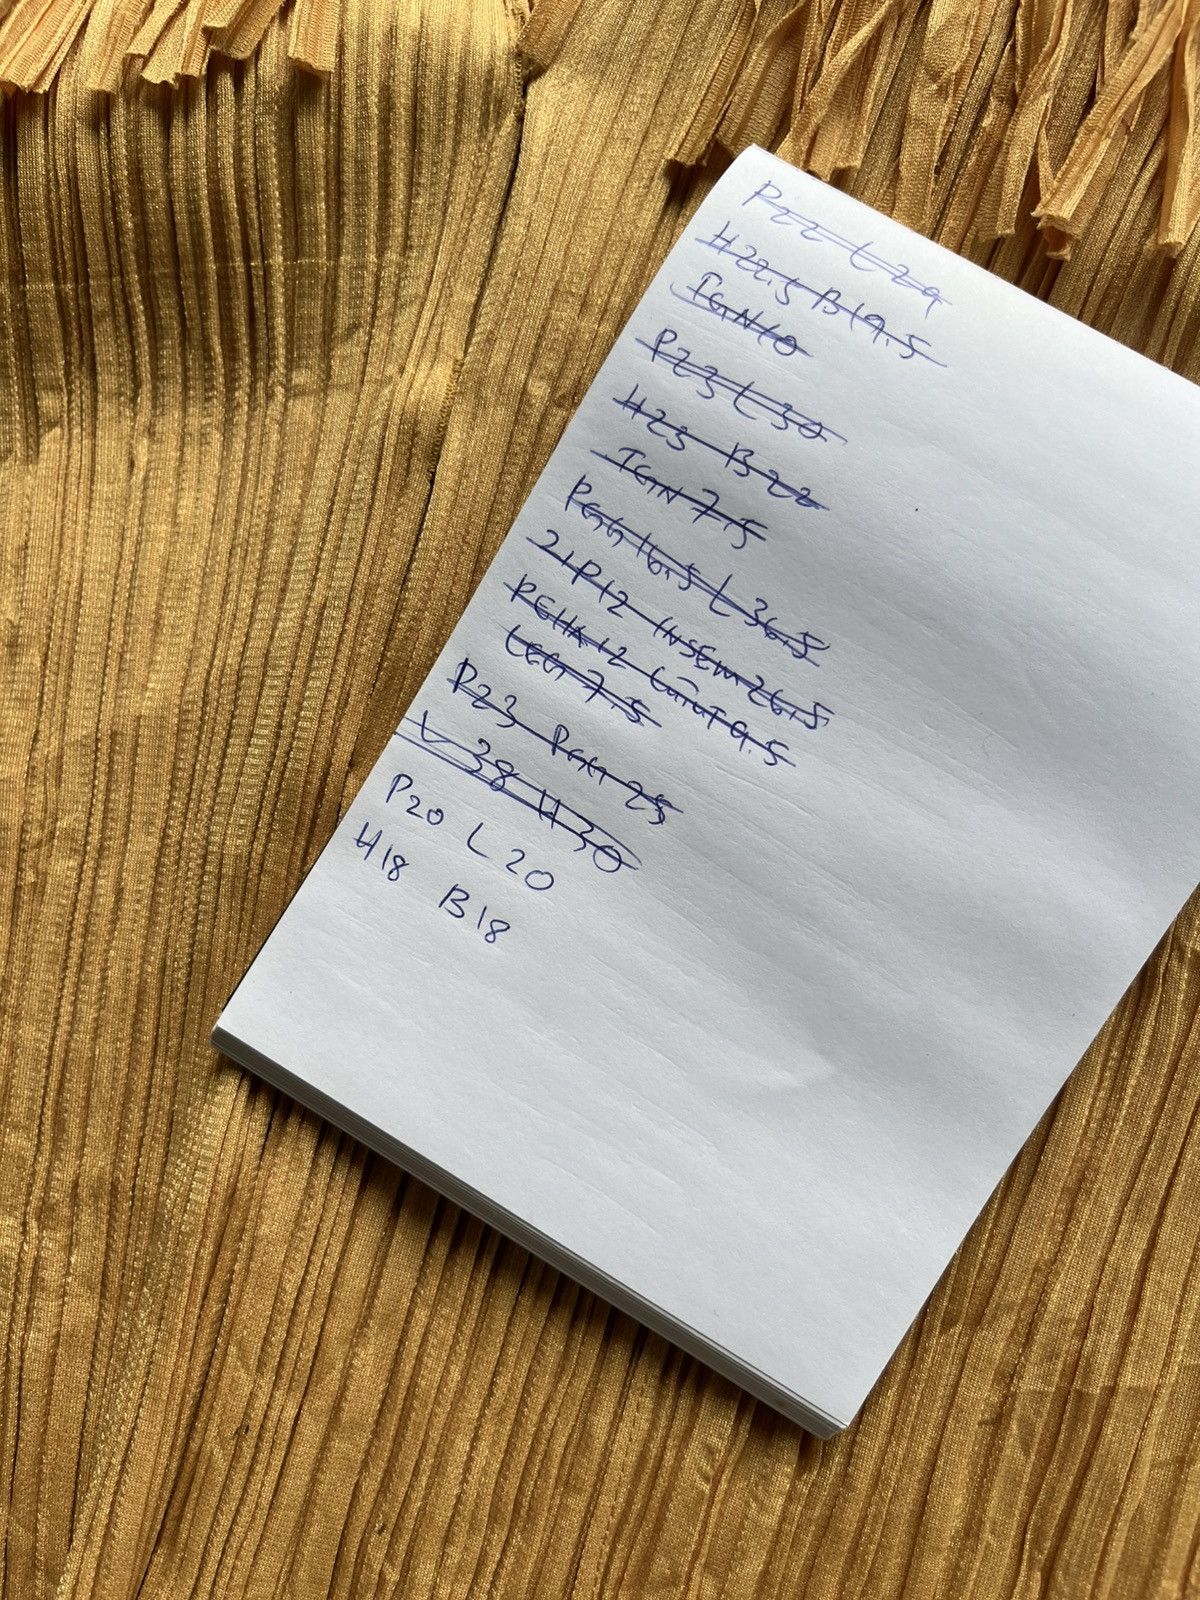 P22 L29
H22.5 B19.5
TGN10
P23 L30
H23 B22
TGN 7.5
PGG 16.5 L 36.5
21P12 INSEM 26.5
12 9.5
LEG 7.5
P23 PGG 25
L 38 H 30
P20 L 20
H18 B18